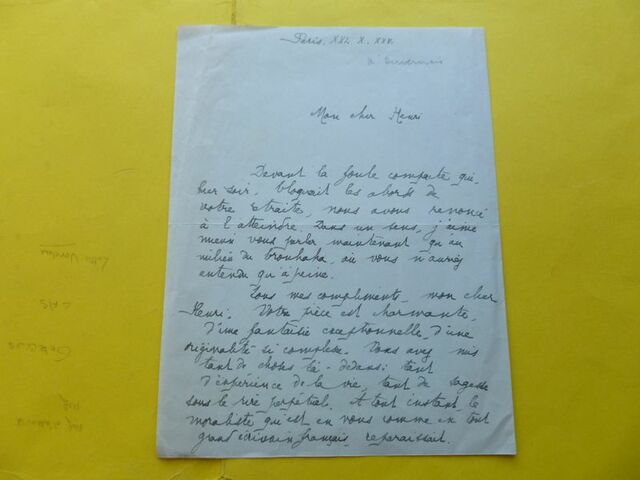 Paris. XXI. X. XXV.
à Duvernois
Mon cher Henri
Devant la foule compacte qui,
hier soir, bloquait les abords de
votre retraite, nous avons renoncé
à l'atteindre. Dans un sens, j'aime
mieux vous parler maintenant qu'au
milieu du brouhaha, où vous n'auriez
entendu qu'à peine.
Tous mes compliments, mon cher
Henri. Votre pièce est charmante,
d'une fantaisie exceptionnelle, d'une
originalité si complexe. Vous avez mis
tant de choses là-dedans: tant
d'expérience de la vie, tant de sagesse
sous le rire perpétuel. A tout instant, le
moraliste qui est en vous comme en tout
grand écrivain français, reparaissait.
LAS